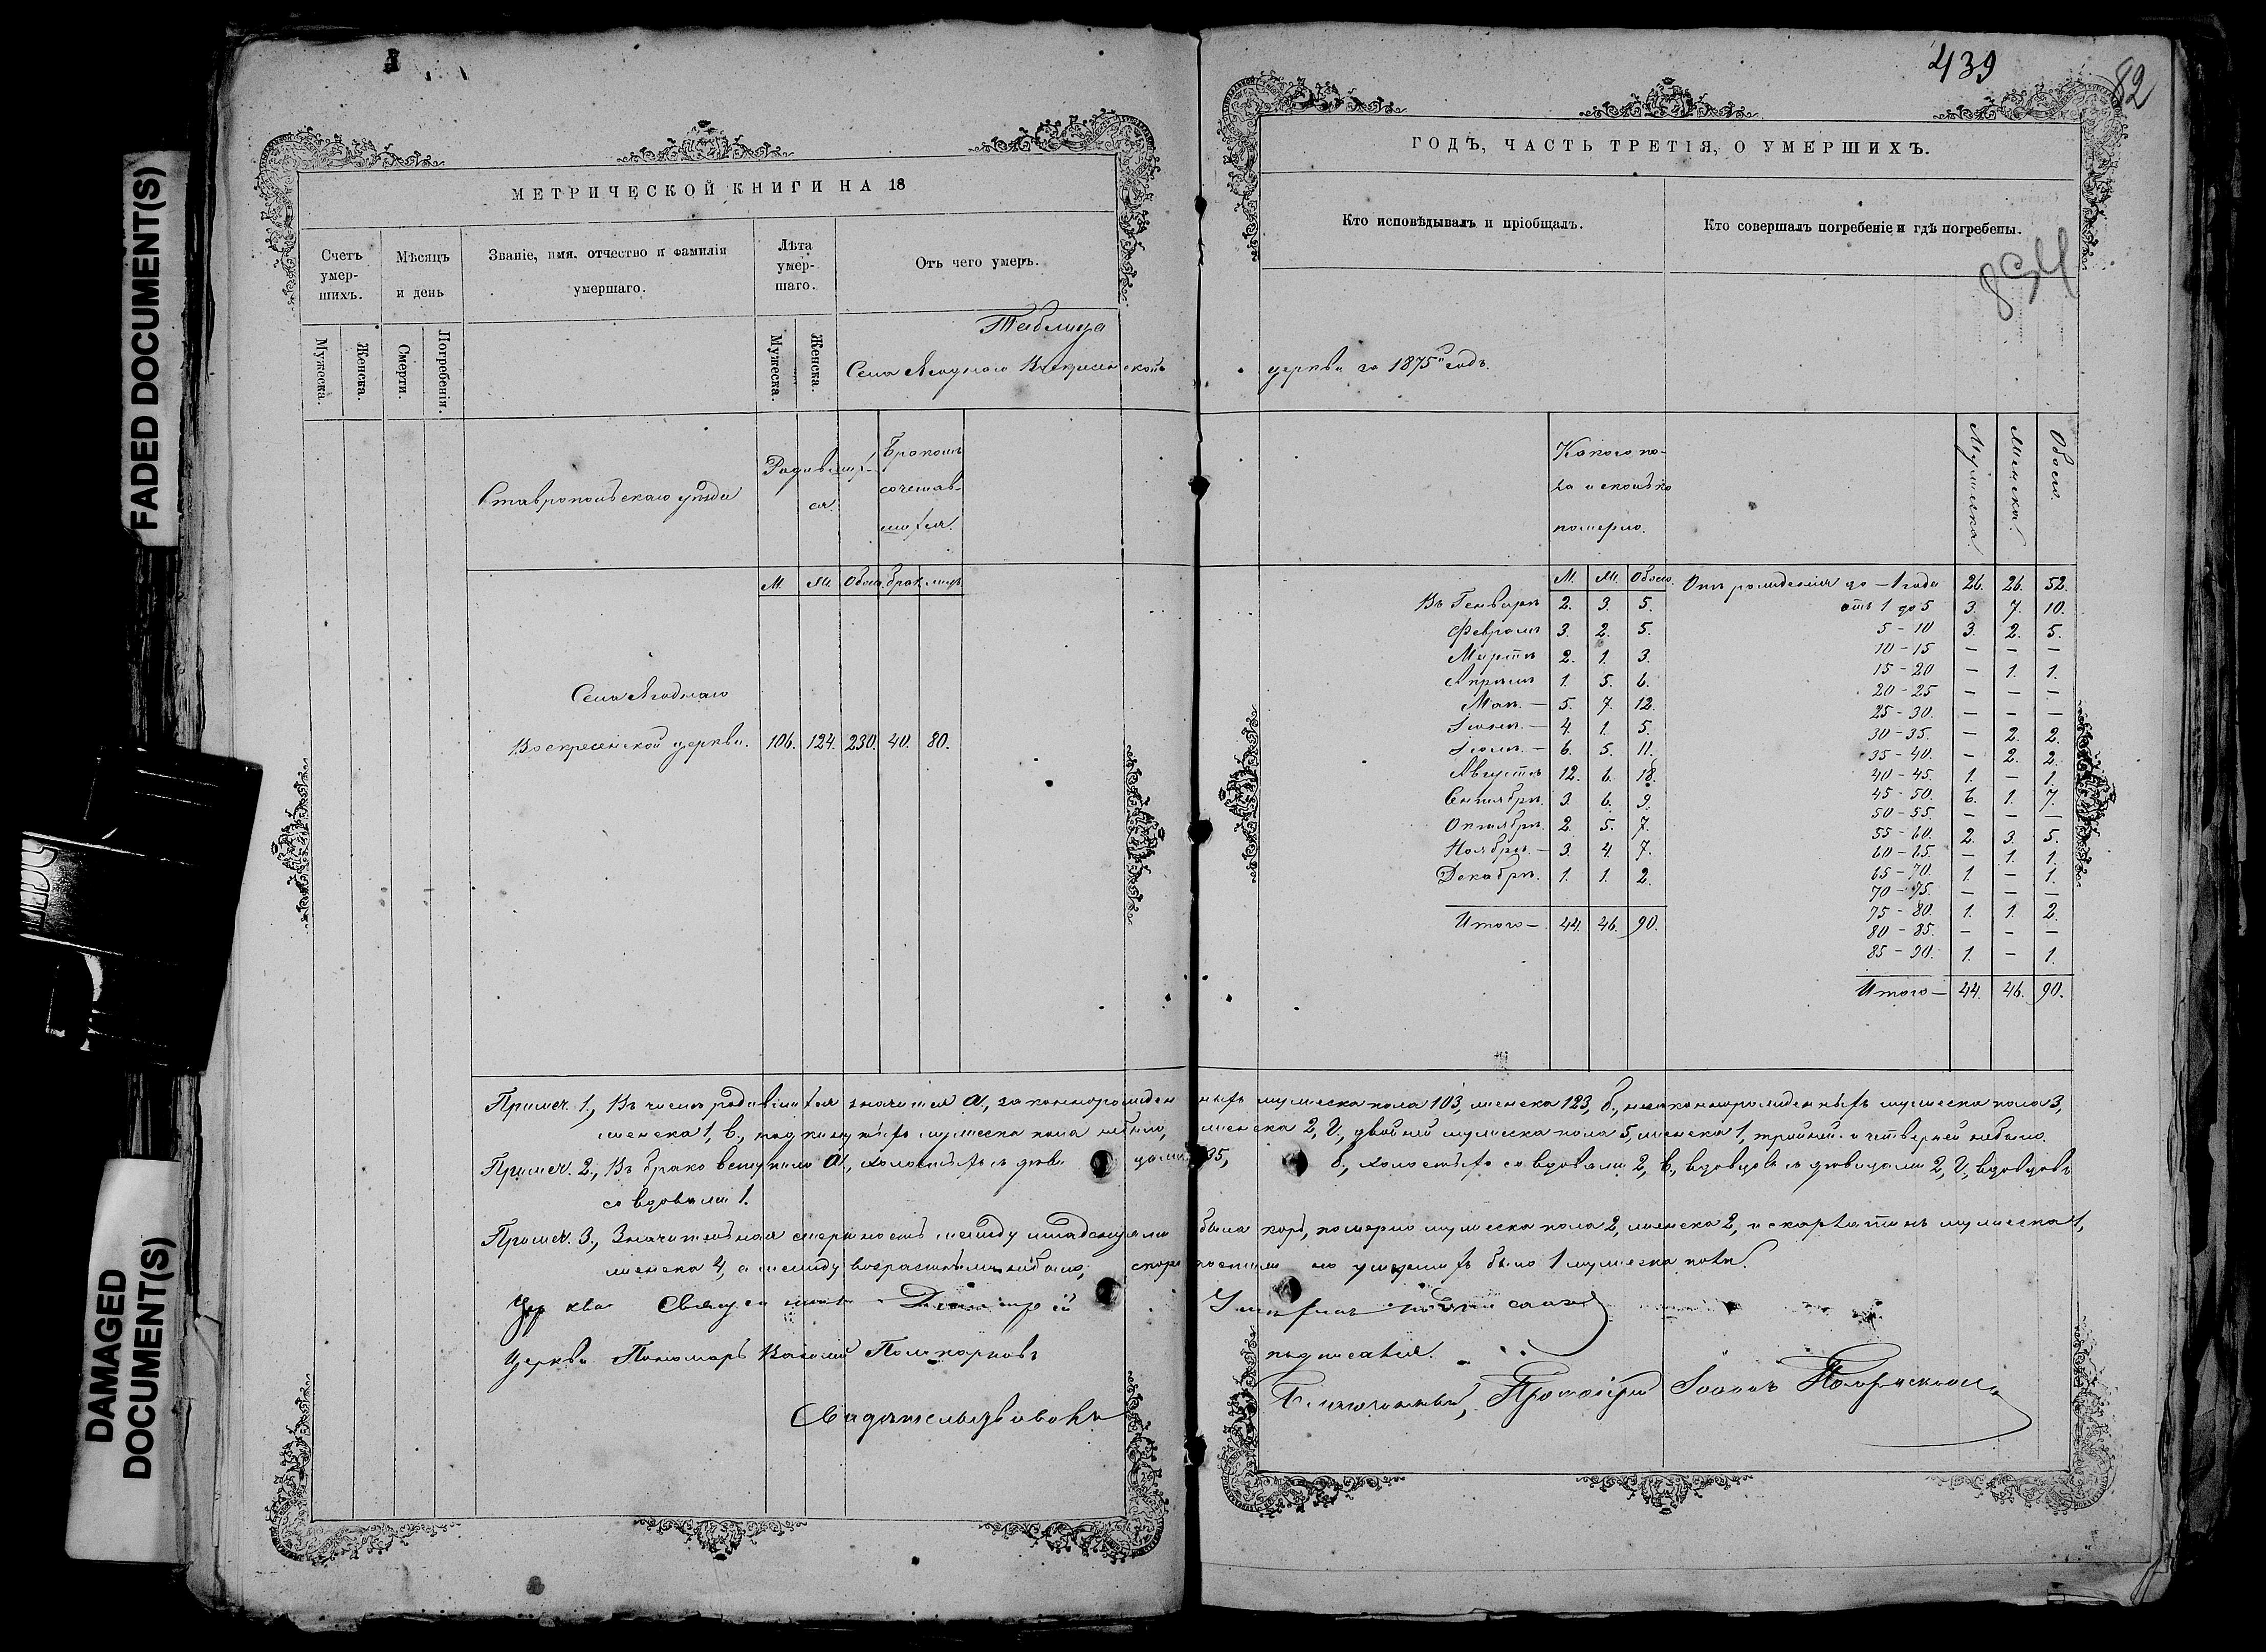 FADED DOCUMENT(S)
DAMAGED DOCUMENT(S)
МЕТРИЧЕСКОЙ КНИГИ НА 18
Счетъ умер-шихъ.
Мѣсяцъ и день
Званіе, имя, отчество и фамилія умершаго.
Лѣта умер-шаго.
Отъ чего умеръ.
Мужеска.
Женска.
Смерти.
Погребенія.
Мужеска.
Женска.
439
82
ГОДЪ, ЧАСТЬ ТРЕТІЯ, О УМЕРШИХЪ.
Кто исповѣдывалъ и пріобщалъ.
Кто совершалъ погребеніе и гдѣ погребены.
Таблица
Села Ягоднаго Воскресенской церкви за 1875й годъ.
Ставропольскаго уѣзда
Родивших-ся.
Бракомъ сочетав-шихся.
М. Ж. Обоего. брак. лицъ
Села Ягоднаго
Воскресенской церкви. 106. 124. 230. 40. 80.
Какого по-ла и сколько померло.
М. Ж. Обоего.
Въ Генварѣ 2. 3. 5.
Февралѣ 3. 2. 5.
Мартѣ 2. 1. 3.
Апрѣлѣ 1. 5. 6.
Маѣ. — 5. 7. 12.
Іюнѣ. — 4. 1. 5.
Іюлѣ. — 6. 5. 11.
Августѣ 12. 6. 18.
Сентябрѣ. 3. 6. 9.
Октябрѣ. 2. 5. 7.
Ноябрѣ. — 3. 4. 7.
Декабрѣ. 1. 1. 2.
Итого — 44. 46. 90.
Мужеска.
Женска.
Обоего.
Отъ рожденія до — 1 года 26. 26. 52.
отъ 1 до 5 3. 7. 10.
5 - 10 3. 2. 5.
10 - 15 — — —
15 - 20 — 1. 1.
20 - 25 — — —
25 - 30. — — —
30 - 35. — 2. 2.
35 - 40. — 2. 2.
40 - 45. 1. — 1.
45 - 50. 6. 1. 7.
50 - 55. — — —
55 - 60. 2. 3. 5.
60 - 65. — 1. 1.
65 - 70. 1. — 1.
70 - 75. — — —
75 - 80. 1. 1. 2.
80 - 85. — — —
85 - 90. 1. — 1.
Итого — 44. 46. 90.
Примеч. 1., Въ числѣ родившихся значится а, законнорожденныхъ мужеска пола 103, женска 123, б., незаконнорожденныхъ мужеска пола 3,
женска 1, в., подкинутыхъ мужеска пола небыло, женска 2, г., двойней мужеска пола 5, женска 1, тройней и четверней небыло.
Примеч. 2., Въ бракъ вступило а, холостыхъ съ дѣвицами 35, б., холостыхъ со вдовами 2, в., вдовцовъ съ дѣвицами 2, г., вдовцовъ
со вдовами 1.
Примеч. 3., Значительная смертность между младенцами была корь, померло мужеска пола 2, женска 2, и скарлатинъ мужеска 1,
женска 4, а между возрастными небыло, умершихъ было 1 мужеска пола.
Священникъ Димитрій
Церкви Пономарь Василій Поликарповъ подписался.
Свидѣтельствовалъ Благочинный, Протоіерей Іоаннъ